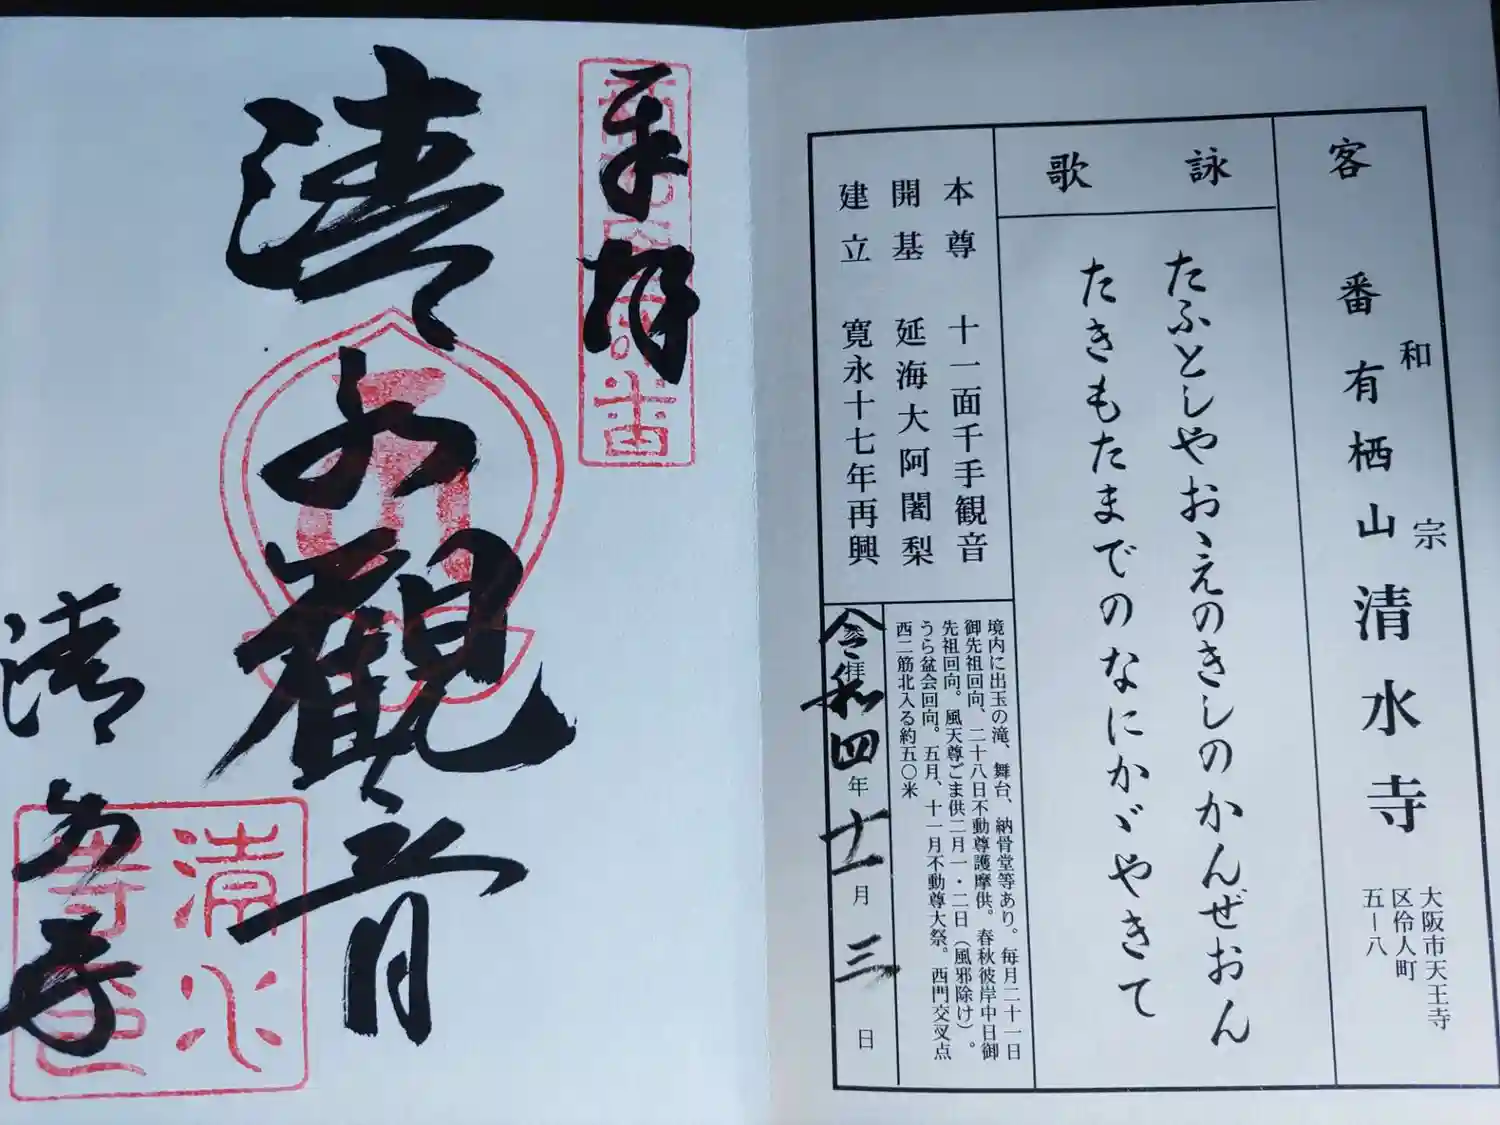 客番
和宗
有栖山
清水寺
大阪市天王寺
区伶人町
五ー八
詠歌
たふとしやおゝえのきしのかんぜおん
たきもたまでのなにかゞやきて
本尊 十一面千手観音
開基 延海大阿闍梨
建立 寛永十七年再興
境内に出玉の滝、舞台、納骨堂等あり。毎月二十一日
御先祖回向、二十八日不動尊護摩供。春秋彼岸中日御
先祖回向。風天尊ごま供二月一・二日（風邪除け）。
うら盆会回向。五月、十一月不動尊大祭。西門交叉点
西二筋北入る約五〇米
参拝
令和四年十一月三日
奉拝
清水観音
清水寺
清水